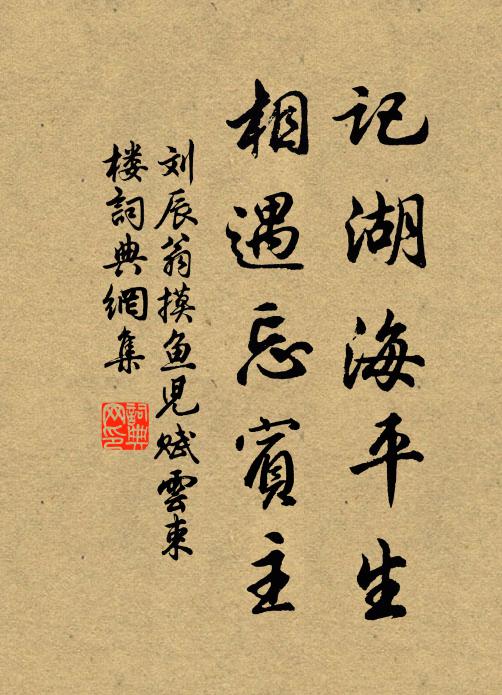 记湖海平生
相遇忘宾主
刘辰翁摸鱼儿赋云束
楼词典網集
词典
网印